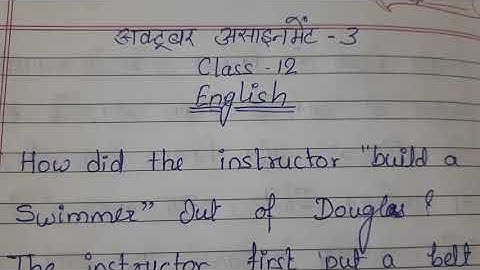 अक्टूबर असाइनमेंट - 3
Class - 12
English
How did the instructor "build a
Swimmer" Out of Douglas ?
The instructor first put a belt